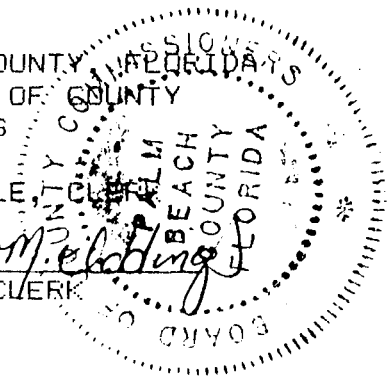 OUNTY, FLORIDA
OF COUNTY
S
LE, CLERK
CLERK
COUNTY COMMISSIONERS
BOARD OF
PALM
BEACH
COUNTY
FLORIDA